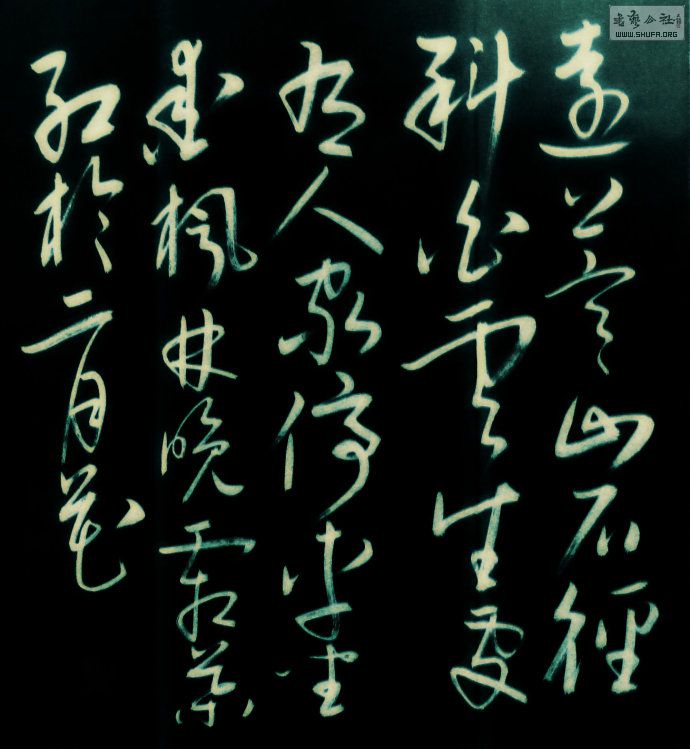 書藝公社
WWW.SHUFA.ORG
遠上寒山石徑
斜白雲生處
有人家停車坐
愛楓林晚霜葉
紅於二月花